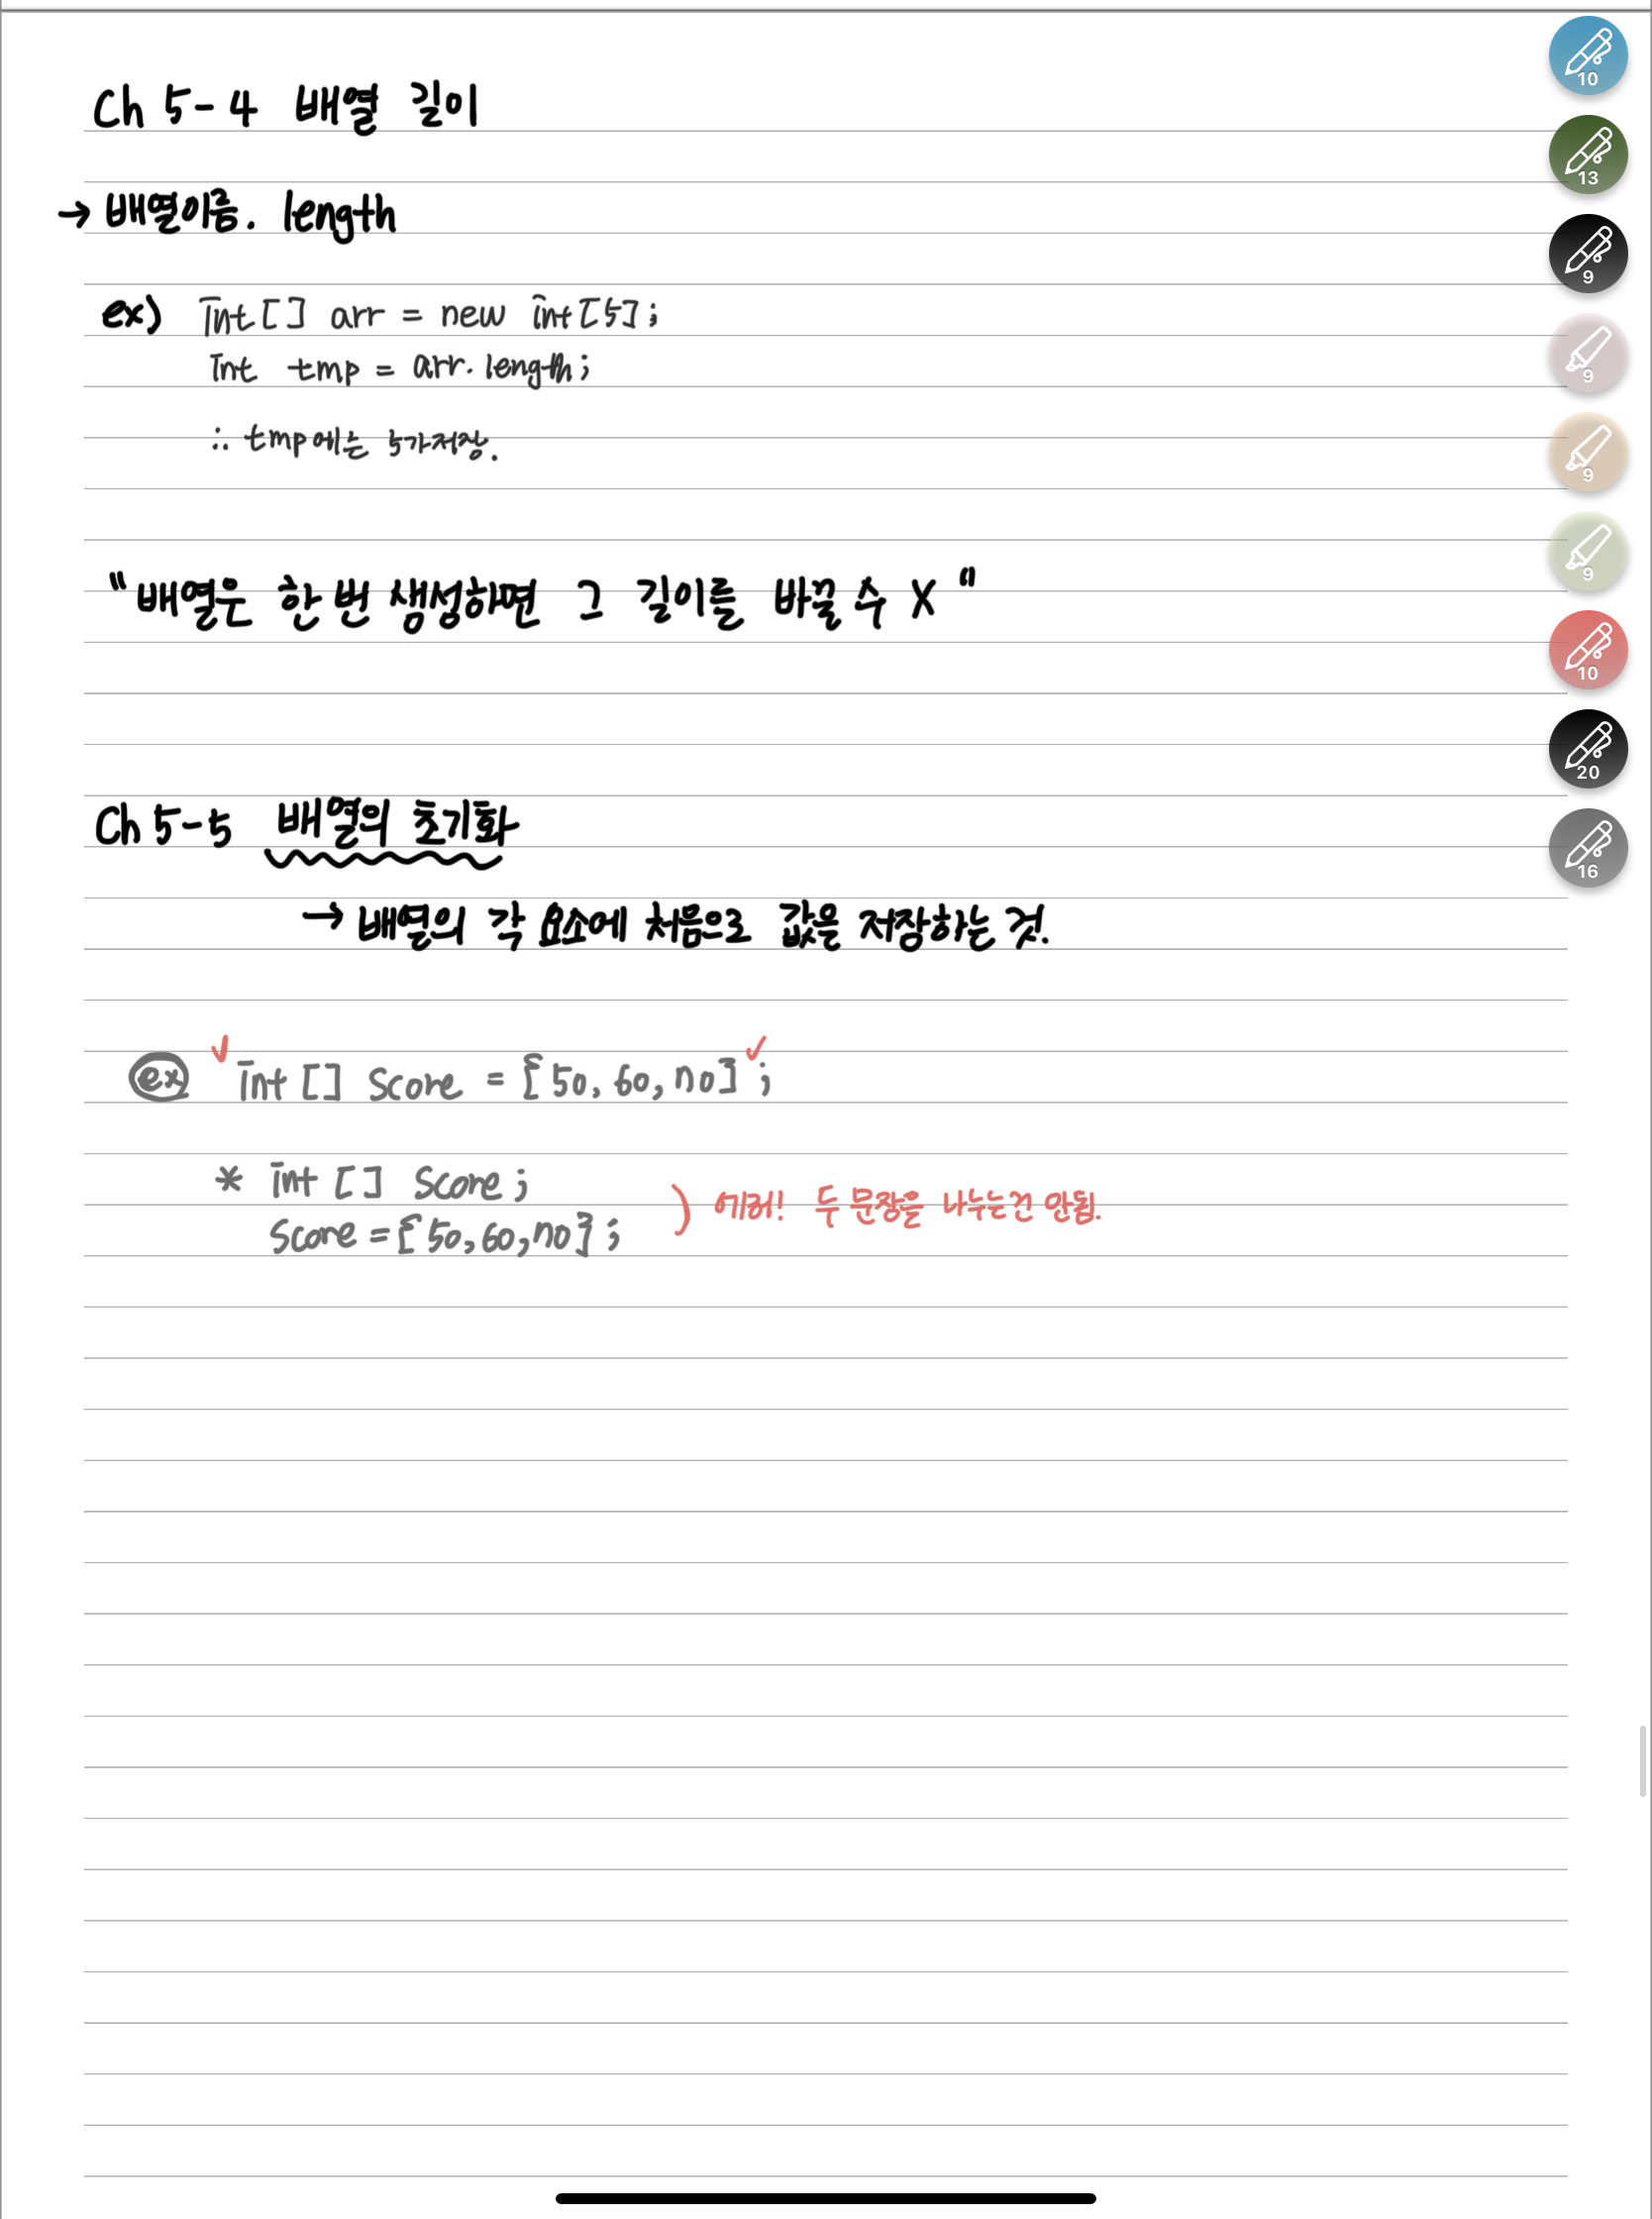 Ch 5-4 배열 길이
→ 배열이름. length
ex) int[] arr = new int[5];
int tmp = arr.length;
∴ tmp에는 5가저장.
"배열은 한 번 생성하면 그 길이를 바꿀 수 X"
Ch 5-5 배열의 초기화
→ 배열의 각 요소에 처음으로 값을 저장하는 것.
ex ✓ int [] Score = {50, 60, 70} ✓;
* int [] Score;
Score = {50,60,70};
) 에러! 두 문장을 나누는건 안됨.
10
13
9
9
9
9
10
20
16